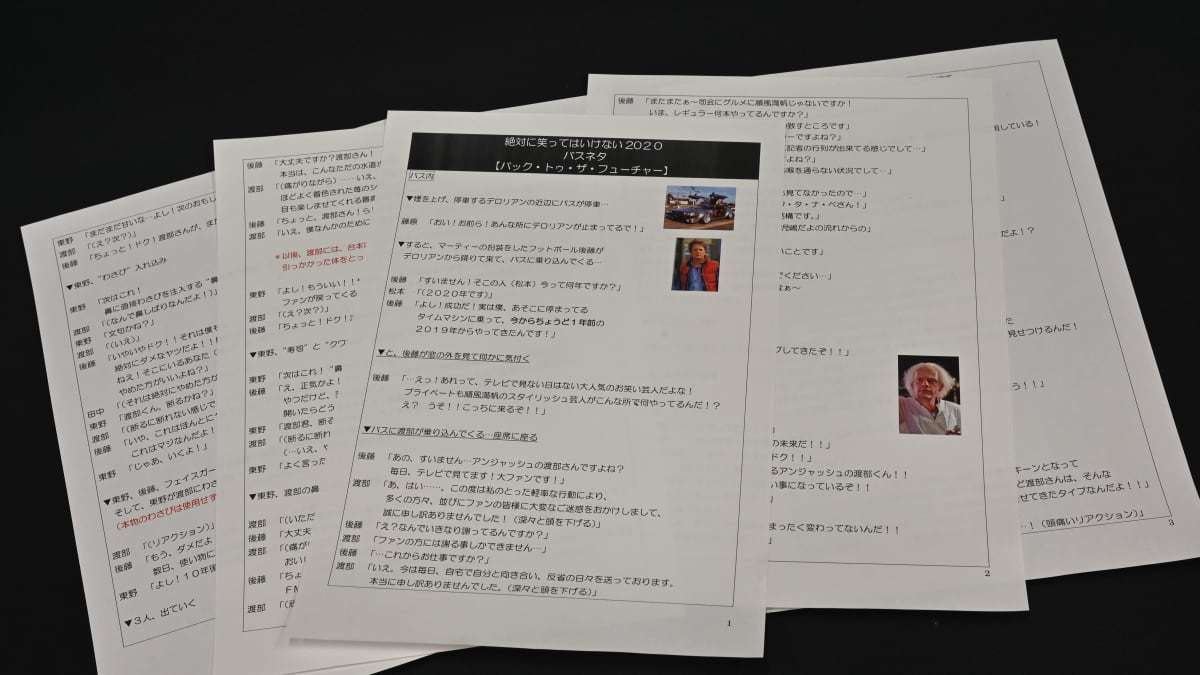 絶対に笑ってはいけない2020
バスネタ
【バック・トゥ・ザ・フューチャー】
バス内
▼煙を上げ、停車するデロリアンの近辺にバスが停車…
藤原 「おい！お前ら！あんな所にデロリアンが止まってるで！」
▼すると、マーティーの扮装をしたフットボール後藤が
デロリアンから降りて来て、バスに乗り込んでくる…
後藤 「すいません！そこの人（松本）今って何年ですか？」
松本 「（2020年です）」
後藤 「よし！成功だ！実は僕、あそこに停まってる
タイムマシンに乗って、今からちょうど1年前の
2019年からやってきたんです！」
▼と、後藤が窓の外を見て何かに気付く
後藤 「…えっ！あれって、テレビで見ない日はない大人気のお笑い芸人だよな！
プライベートも順風満帆のスタイリッシュ芸人がこんな所で何やってるんだ！？
え？ うそ！！こっちに来るぞ！！」
▼バスに渡部が乗り込んでくる…座席に座る
後藤 「あの、すいません…アンジャッシュの渡部さんですよね？
毎日、テレビで見てます！大ファンです！」
渡部 「あ、はい……、この度は私のとった軽率な行動により、
多くの方々、並びにファンの皆様に大変なご迷惑をおかけしまして、
誠に申し訳ありませんでした！（深々と頭を下げる）」
後藤 「え？なんでいきなり謝ってるんですか？」
渡部 「ファンの方には謝る事しかできません…」
後藤 「…これからお仕事ですか？」
渡部 「いえ。今は毎日、自宅で自分と向き合い、反省の日々を送っております。
本当に申し訳ありませんでした。（深々と頭を下げる）」
1
後藤 「またまたぁ～司会にグルメに順風満帆じゃないですか！
いま、レギュラー何本やってるんですか？」
放すところです」
ーですよね？」
記者の行列が出来てる感じでして…」
よね？」
喉を通らない状況でして…」
見てなかったので…」
・タ・ナ・ベさん！」
備です。」
児嶋だよの流れからの」
いことです」
ください…」
ぁ～
プしてきたぞ！！」
の未来だ！！」
ドク！！」
るアンジャッシュの渡部くん！！
い事になっているぞ！！」
まったく変わってないんだ！！
2
指している！
だよ！？
見せつけるんだ！
う！！」
キーンとなって
ど渡部さんは、そんな
させてきたタイプなんだよ！！」
…！（頭痛いリアクション）」
3
後藤 「大丈夫ですか？渡部さん！
本当は、こんなただの水道
渡部 「（痛がりながら）……いえ、
ほどよく着色された苺のシ
目も楽しませてくれる最高
後藤 「ちょっと、渡部さん！ら
渡部 「いえ、僕なんかのために
＊以後、渡部には、台本
引っかかった体をとっ
東野 「よし！もういい！！
ファンが戻ってくる
渡部 「（え？次？）」
後藤 「ちょっと！ドク！
▼東野、“寿司”と“クワ
東野 「次はこれ！“鼻
後藤 「え、正気かよ！
やつだけど、
開いたらどう
東野 「渡部君、断る
渡部 「（断るに断れ
（…いえ、や
東野 「よく言った
▼東野、渡部の鼻
渡部 「（いただ
後藤 「大丈夫
渡部 「（痛が
おい！
後藤 「ちょ
FM
渡部
東野 「まだまだ甘いな…よし！次のおもし
渡部 「（え？次？）」
後藤 「ちょっと！ドク！渡部さんが、また
▼東野、“わさび”入れ込み
東野 「次はこれ！
鼻に直接わさびを注入する“鼻
渡部 「（なんで鼻しばりなんだよ！）」
東野 「文句かね？」
渡部 「（いえ）」
後藤 「いやいやドク！！それは僕も
絶対にダメなヤツだよ！！
ねえ！そこにいるあなた（
やめた方がいいよね？」
田中 「（それは絶対にやめた方が
東野 「渡部くん、断るかね？」
渡部 「（断るに断れない感じで
後藤 「いや、これはほんとに
これはマジなんだよ！
東野 「じゃあ、いくよ！」
▼東野、後藤、フェイスガー
そして、東野が渡部にわさ
（本物のわさびは使用せず
渡部 「（リアクション）」
後藤 「もう、ダメだよ
数日、使い物に
東野 「よし！10年後
▼3人、出ていく